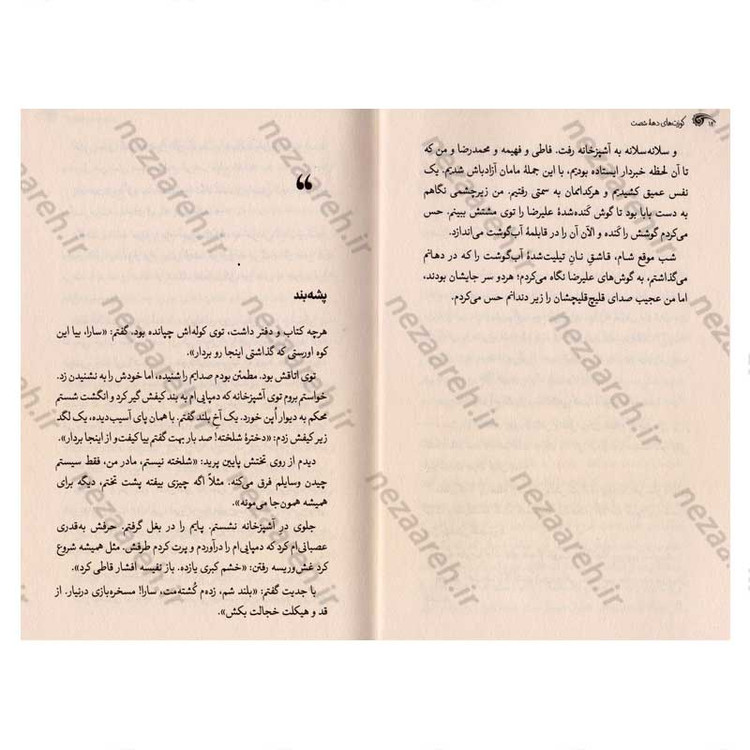 ۱۴ کوزت‌های دههٔ شصت
و سلانه‌سلانه به آشپزخانه رفت. فاطی و فهیمه و محمدرضا و من که
تا آن لحظه خبردار ایستاده بودیم، با این جملهٔ مامان آزادباش شدیم. یک
نفس عمیق کشیدیم و هرکداممان به سمتی رفتیم. من زیرچشمی نگاهم
به دست بابا بود تا گوش کنده‌شدهٔ علیرضا را توی مشتش ببینم. حس
می‌کردم گوشش را کَنده و الآن آن را در قابلمهٔ آب‌گوشت می‌اندازد.
شب موقع شام، قاشق نانِ تیلیت‌شدهٔ آب‌گوشت را که در دهانم
می‌گذاشتم، به گوش‌های علیرضا نگاه می‌کردم؛ هردو سر جایشان بودند،
اما من عجیب صدای قلیچ‌قلیچشان را زیر دندانم حس می‌کردم.
“
پشه‌بند
هرچه کتاب و دفتر داشت، توی کوله‌اش چپانده بود. گفتم: «سارا، بیا این
کوه اورستی که گذاشتی اینجا رو بردار».
توی اتاقش بود. مطمئن بودم صدایم را شنیده، اما خودش را به نشنیدن زد.
خواستم بروم توی آشپزخانه که دمپایی‌ام به بند کیفش گیر کرد و انگشت شستم
محکم به دیوار اُپن خورد. یک آخِ بلند گفتم. با همان پای آسیب‌دیده، یک لگد
زیر کیفش زدم: «دخترهٔ شلخته! صد بار بهت گفتم بیا کیفت و از اینجا بردار».
دیدم از روی تختش پایین پرید: «شلخته نیستم، مادر من، فقط سیستم
چیدن وسایلم فرق می‌کنه. مثلاً اگه چیزی بیفته پشت تختم، دیگه برای
همیشه همون‌جا می‌مونه».
جلوی درِ آشپزخانه نشستم. پایم را در بغل گرفتم. حرفش به‌قدری
عصبانی‌ام کرد که دمپایی‌ام را درآوردم و پرت کردم طرفش. مثل همیشه شروع
کرد غش‌وریسه رفتن: «خشم کبری یازده. باز نفیسه افشار قاطی کرد».
با جدیت گفتم: «بلند شم، زده‌م کُشته‌مت، سارا! مسخره‌بازی درنیار. از
قد و هیکلت خجالت بکش».
nezaareh.ir